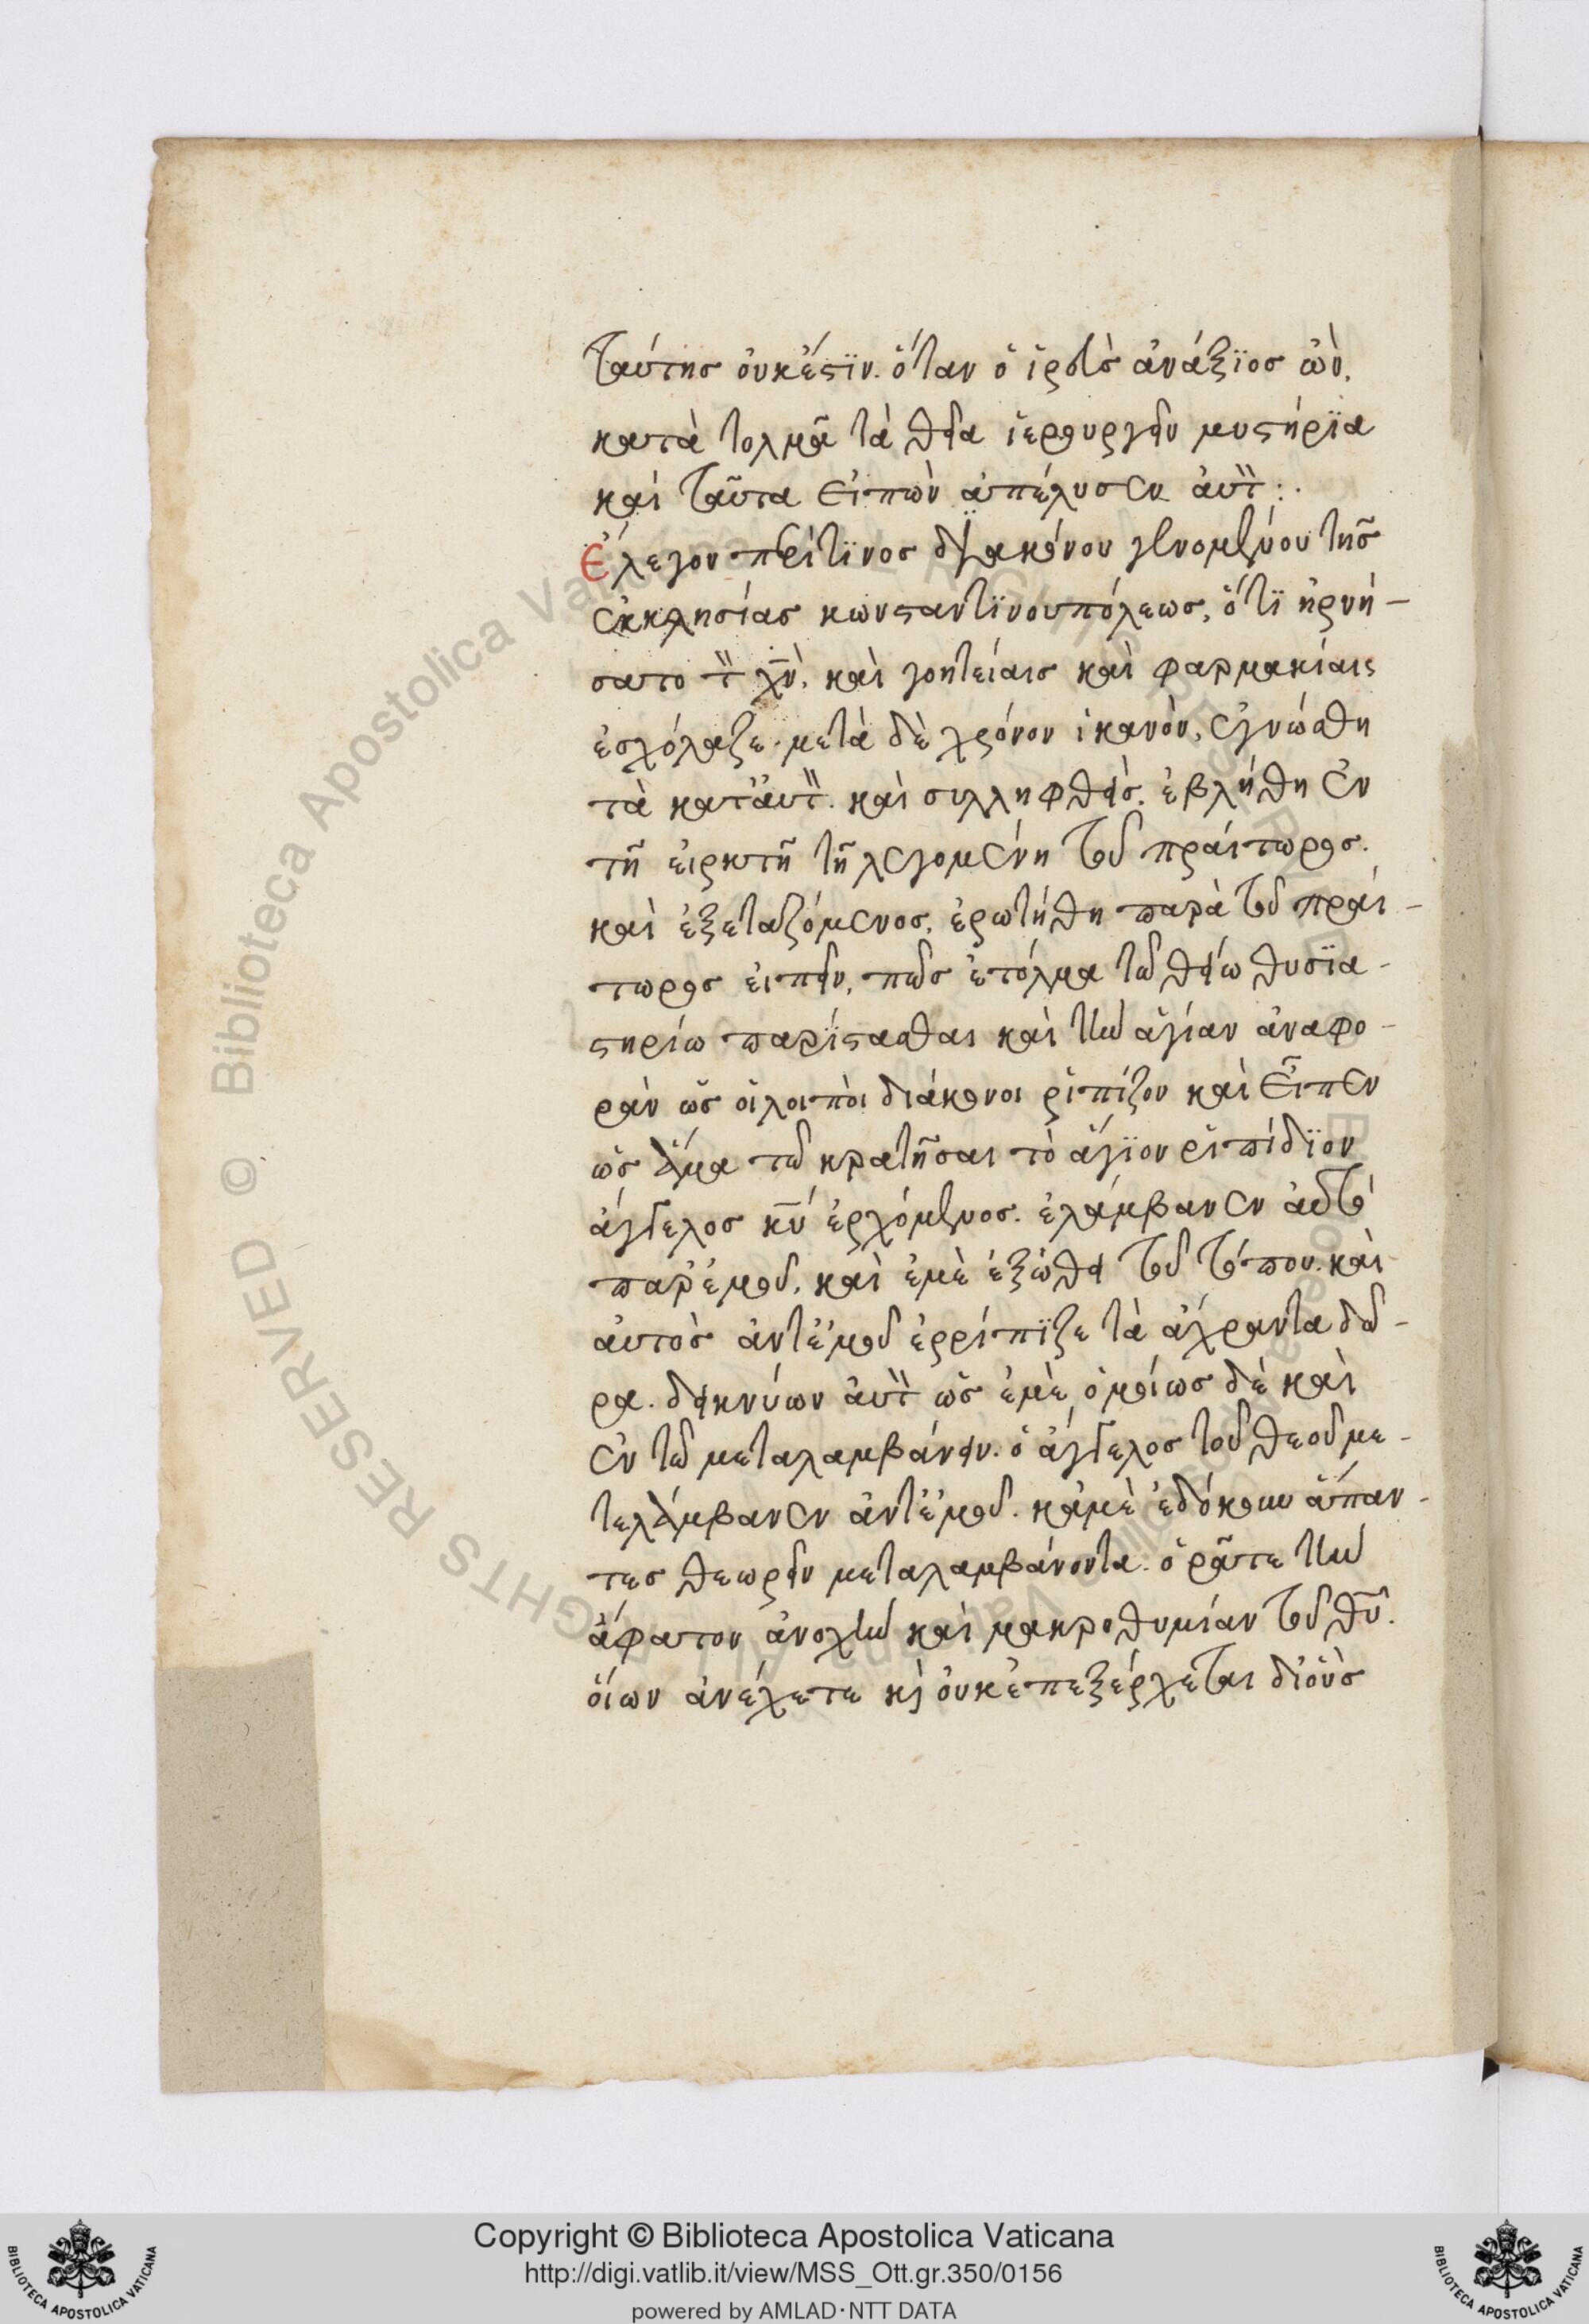 ταύτης οὐκέστϊν. ὅταν ὁ ἱερεὺς ἀνάξϊος ὢν.
κατὰ τολμᾶ τὰ θεῖα ἱερουργεῖν μυστήρϊα
καὶ ταῦτα εἰπὼν ἀπέλυσεν αὐτὸν:.
Ἔλεγον περίτϊνος διακόνου γενομένου τῆς
ἐκκλησίας κωνσταντϊνουπόλεως, ὅτϊ ἠρνή-
σατο τὸν χν̅. καὶ γοητείαις καὶ φαρμακίαις
ἐσχόλαζε. μετὰ δὲ χρόνον ἱκανὸν, ἐγνώσθη
τὰ κατ' αὐτὸν. καὶ συλληφθεὶς. ἐβλήθη ἐν
τῆ εἰρκτῆ τῆ λεγομένη τοῦ πραίτωρος.
καὶ ἐξεταζόμενος. ἐρωτήθη παρὰ τοῦ πραί-
τωρος εἰπεῖν, πῶς ἐτόλμα τῶ θείω θυσϊα-
στηρίω παρίστασθαι καὶ τὴν ἁγίαν ἀναφο-
ρὰν ὡς οἱ λοιποὶ διάκονοι ῥιπίζον καὶ εἶπεν
ὡς ἅμα τῶ κρατῆσαι τὸ ἅγϊον ῥιπίδϊον
ἄγγελος κυ̅ ἐρχόμενος. ἐλάμβανεν αὐτὸ
παρ' ἐμοῦ. καὶ ἐμὲ ἐξώθει τοῦ τόπου. καὶ
αὐτὸς ἀντ' ἐμοῦ ἐρρίπϊζε τὰ ἄχραντα δῶ-
ρα. δεικνύων αὐτὸν ὡς ἐμὲ, ὁμοίως δὲ καὶ
ἐν τῶ μεταλαμβάνειν. ὁ ἄγγελος τοῦ θεοῦ με-
τελάμβανεν ἀντ' ἐμοῦ. κἀμὲ ἐδόκουν ἅπαν-
τες θεωρεῖν μεταλαμβάνοντα. ὁρᾶτε τὴν
ἄφατον ἀνοχὴν καὶ μακροθυμίαν τοῦ θυ̅.
οἵων ἀνέχετε κὶ οὐκ ἐπεξέρχεται δι' οὓς
Copyright © Biblioteca Apostolica Vaticana
http://digi.vatlib.it/view/MSS_Ott.gr.350/0156
powered by AMLAD·NTT DATA
BIBLIOTECA APOSTOLICA VATICANA
BIBLIOTECA APOSTOLICA VATICANA
© Biblioteca Apostolica Vaticana ALL RIGHTS RESERVED